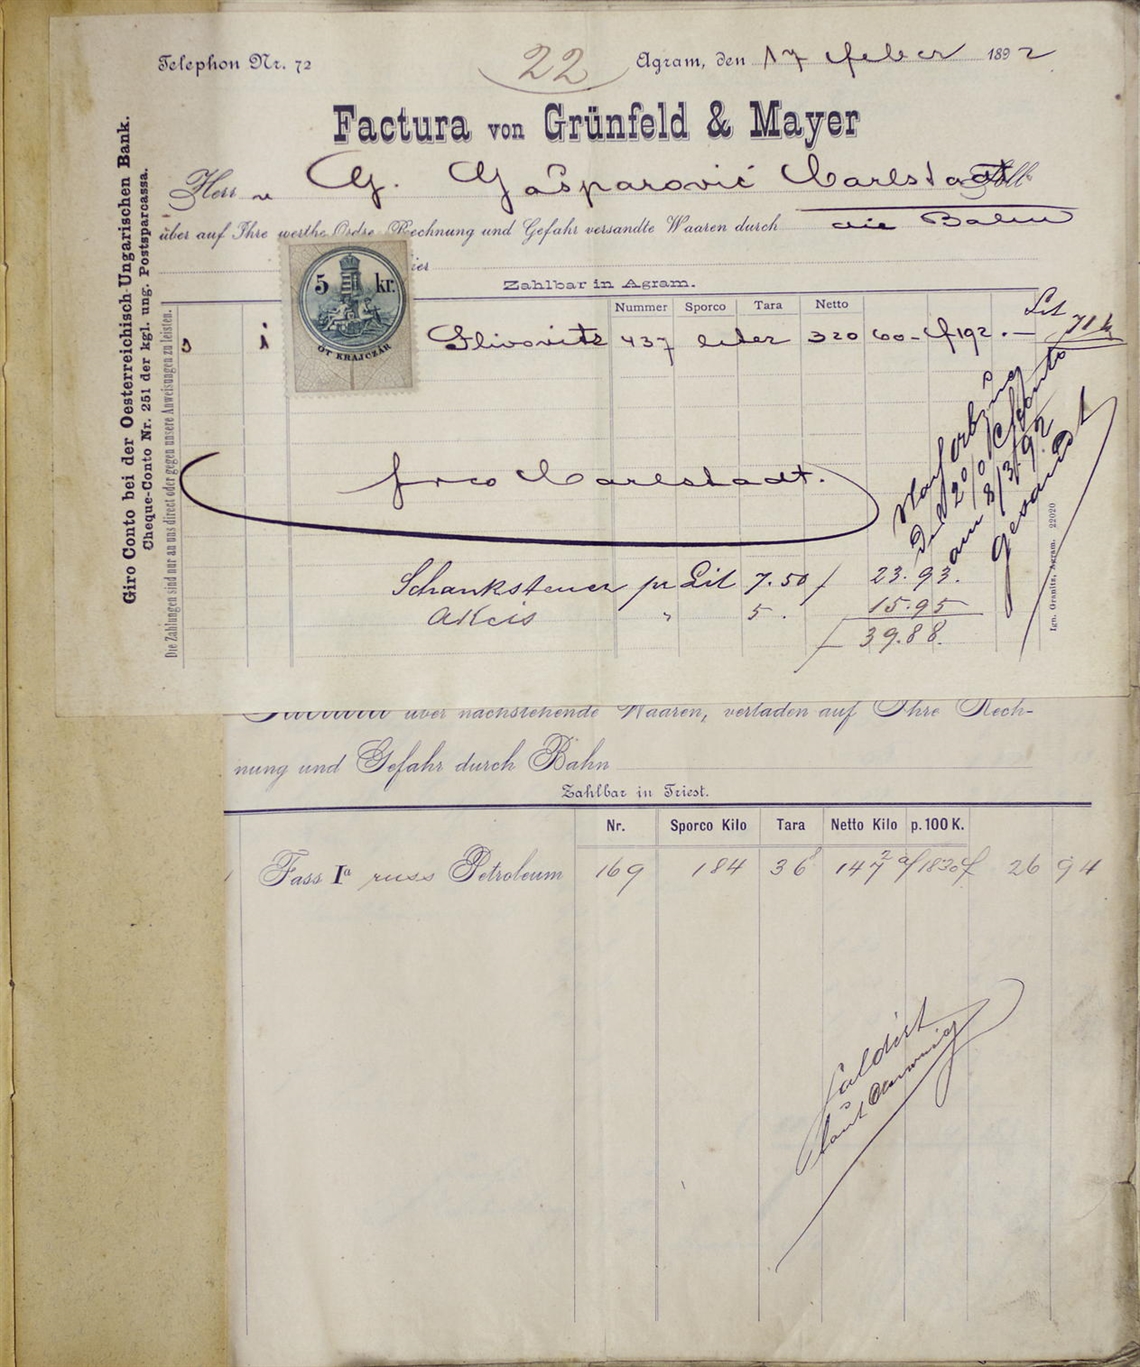 Telephon Nr. 72
22
Agram, den 17 feber 1892
Factura von Grünfeld & Mayer
Herr n G. Gašparović Carlstadt
über auf Ihre werthe Ordre, Rechnung und Gefahr versandte Waaren durch die Bahn
hier
Zahlbar in Agram.
Nummer Sporco Tara Netto
5 kr.
ÖT KRAJCZÁR
Slivovitz 437 liter 320 60- f 192.—
frco Carlstadt.
Schanksteuer pr Lit 7.50 / 23.93.
Akcis " 5. 15.95
39.88.
den 2% Sconto
am 8/3/92
gesandt
Giro Conto bei der Oesterreichisch-Ungarischen Bank.
Cheque-Conto Nr. 251 der kgl. ung. Postsparcassa.
Die Zahlungen sind nur an uns direct oder gegen unsere Anweisungen zu leisten.
Ign. Granitz, Agram. 22020
Factura über nachstehende Waaren, verladen auf Ihre Rech-
nung und Gefahr durch Bahn
Zahlbar in Triest.
Nr. Sporco Kilo Tara Netto Kilo p. 100 K.
1 Fass Iª russ Petroleum 169 184 36 147 f 1830 f 26 94
saldirt
laut